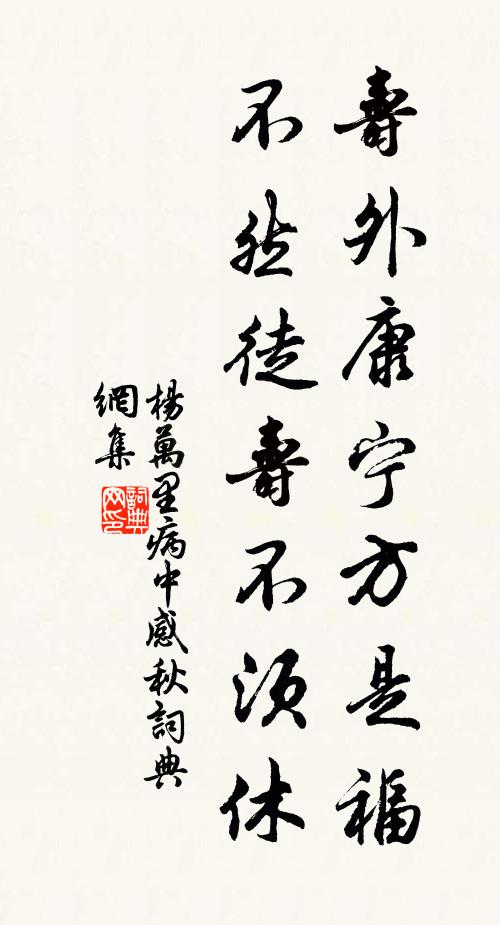 壽外康宁方是福
不然徒壽不須休
楊萬里病中感秋詞典
網集
詞典
网印